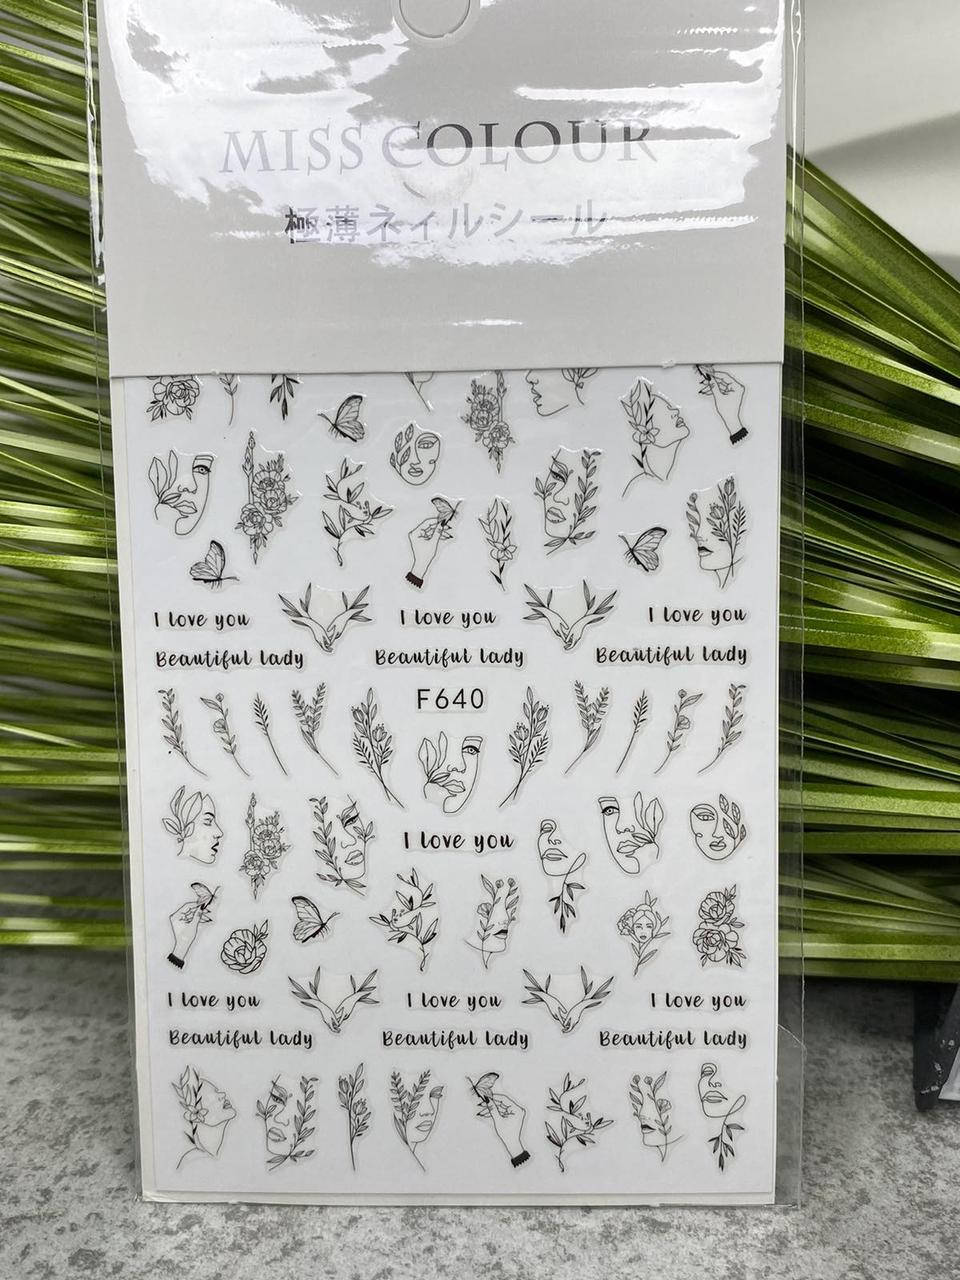 MISS COLOUR
極薄ネイルシール
I love you I love you I love you
Beautiful lady Beautiful lady Beautiful lady
F640
I love you
I love you I love you I love you
Beautiful lady Beautiful lady Beautiful lady